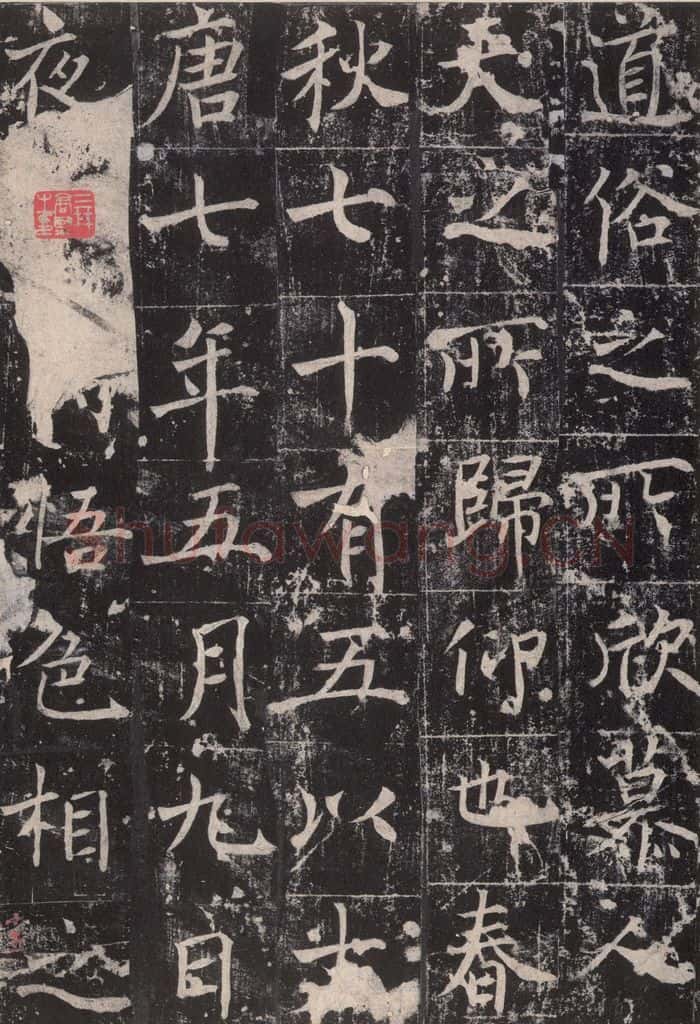 道俗之所欣慕人
天之所歸仰也春
秋七十有五以
唐七年五月九日
夜悟色相之
shufawang.CN